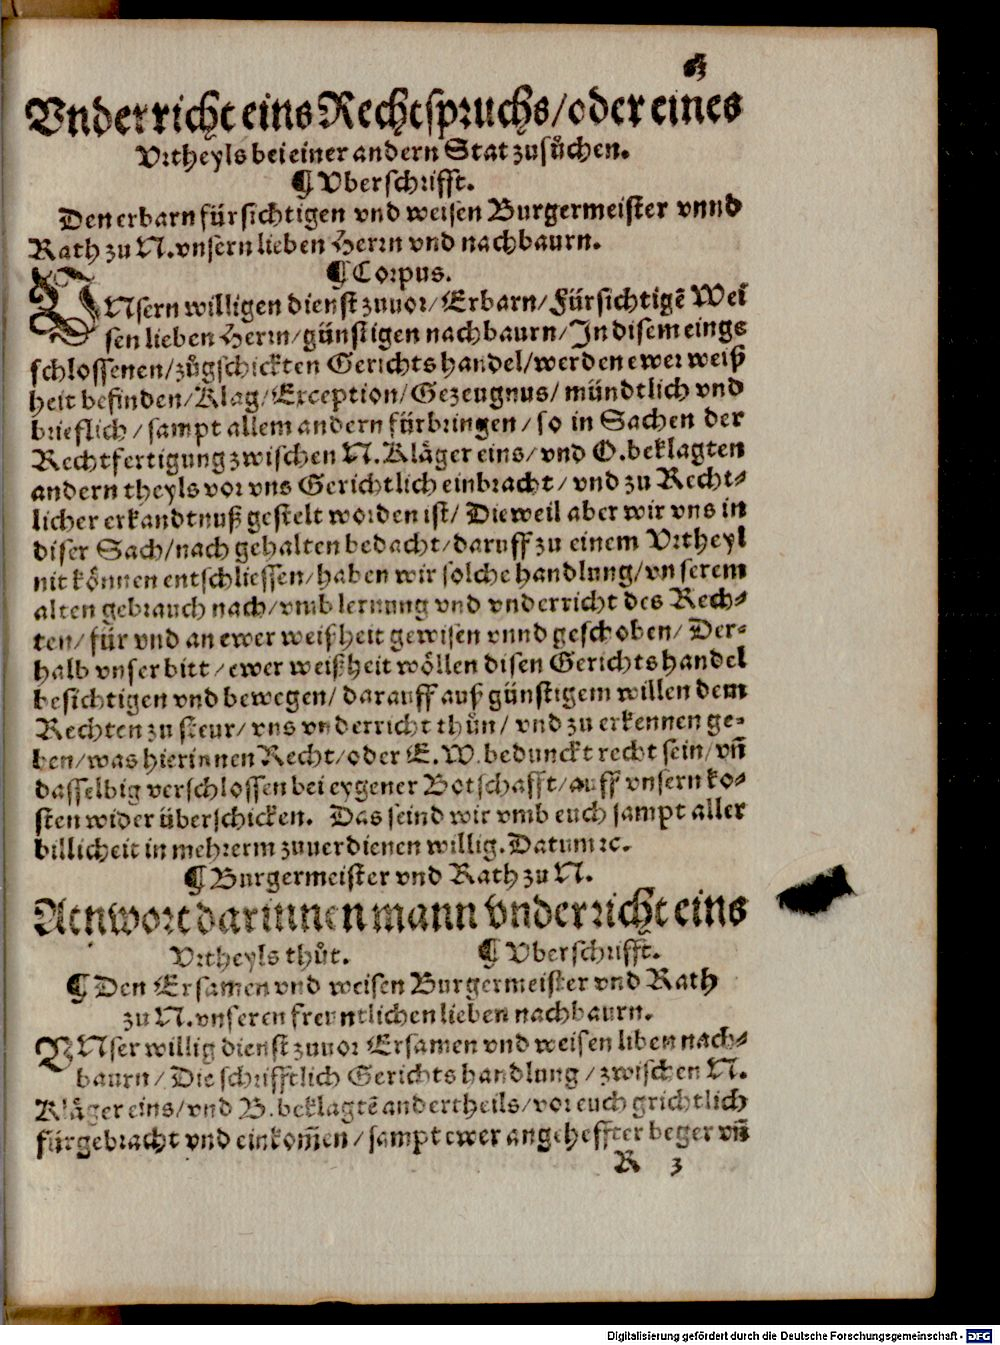 Vnderricht eins Rechtspruchs/oder eines
Vrtheyls bei einer andern Stat zusůchen.
¶ Vberschrifft.
Den erbarn fürsichtigen vnd weisen Burgermeister vnnd
Rath zu N. vnsern lieben Herrn vnd nachbaurn.
¶ Corpus.
VNsern willigen dienst zuuor/ Erbarn/ Fürsichtigẽ Wei
sen lieben Herrn/ günstigen nachbaurn/ In disem eings
schlossenen/ zůgschickten Gerichts handel/ werden ewer weiß
heit befinden/ Klag/ Exception/ Gezeugnus/ mündtlich vnd
brieflich/ sampt allem andern fürbringen/ so in Sachen der
Rechtfertigung zwischen N. Kläger eins/ vnd O. beklagten
andern theyls vor vns Gerichtlich einbracht/ vnd zu Recht-
licher erkandtnuß gestelt worden ist/ Dieweil aber wir vns in
diser Sach/ nach gehalten bedacht/ daruff zu einem Vrtheyl
nit können entschliessen/ haben wir solche handlung/ vnserem
alten gebrauch nach/ vmb lernung vnd vnderricht des Rech-
ten/ für vnd an ewer weißheit gewisen vnnd geschoben/ Der-
halb vnser bitt/ ewer weißheit wöllen disen Gerichts handel
besichtigen vnd bewegen/ darauff auß günstigem willen dem
Rechten zu steur/ vns vnderricht thůn/ vnd zu erkennen ge-
ben/ was hierinnen Recht/ oder E. W. bedunckt recht sein/ vñ
dasselbig verschlossen bei eygener Botschafft/ auff vnsern ko-
sten wider überschicken. Das seind wir vmb euch sampt aller
billicheit in mehrerm zuuerdienen willig. Datum ꝛc.
¶ Burgermeister vnd Rath zu N.
Atnwort darinnen mann vnderricht eins
Vrtheyls thůt. ¶ Vberschrifft.
¶ Den Ersamen vnd weisen Burgermeister vnd Rath
zu N. vnseren freuntlichen lieben nachbaurn.
VNser willig dienst zuuor Ersamen vnd weisen liben nach-
baurn/ Die schrifftlich Gerichts handlung/ zwischen N.
Kläger eins/ vnd B. beklagtẽ andertheils/ vor euch grichtlich
fürgebracht vnd einkom̃en/ sampt ewer angeheffter beger vñ
R 3
Digitalisierung gefördert durch die Deutsche Forschungsgemeinschaft - DFG